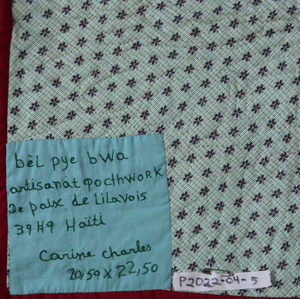 bèl pye bwa
artisanat pacthwork
De paix de Lilavois
39H9 Haïti
Carine charles
20,50 x 22,50
P2022-04-5